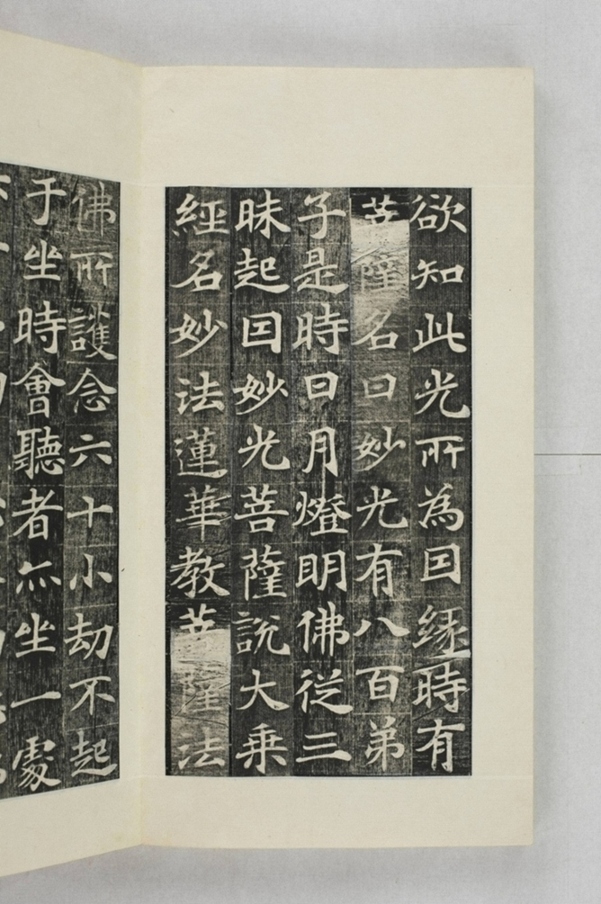 欲知此光所為囙縁時有
菩薩名曰妙光有八百弟
子是時日月燈明佛從三
昧起囙妙光菩薩說大乗
經名妙法蓮華教菩薩法
佛所護念六十小劫不起
于坐時會聽者亦坐一處